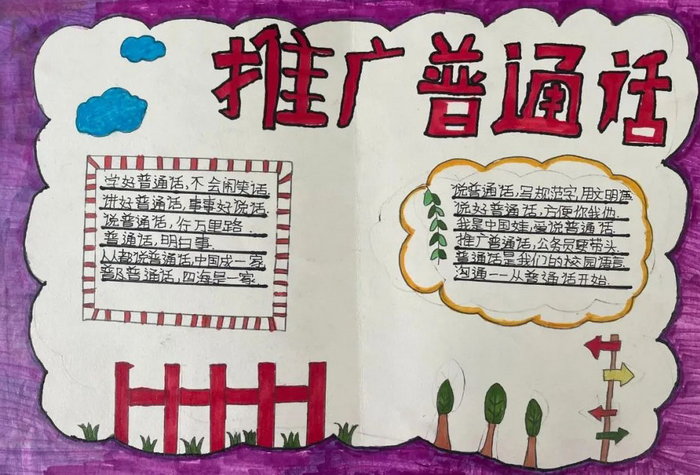 推广普通话
学好普通话,不会闹笑话.
讲好普通话,事事好说话.
说普通话,行万里路.
普通话,明白事.
人人都说普通话,中国成一家
普及普通话,四海是一家.
说普通话,写规范字,用文明语
说好普通话,方便你我他.
我是中国娃,爱说普通话.
推广普通话,公务员要带头.
普通话是我们的校园语言
沟通--从普通话开始.